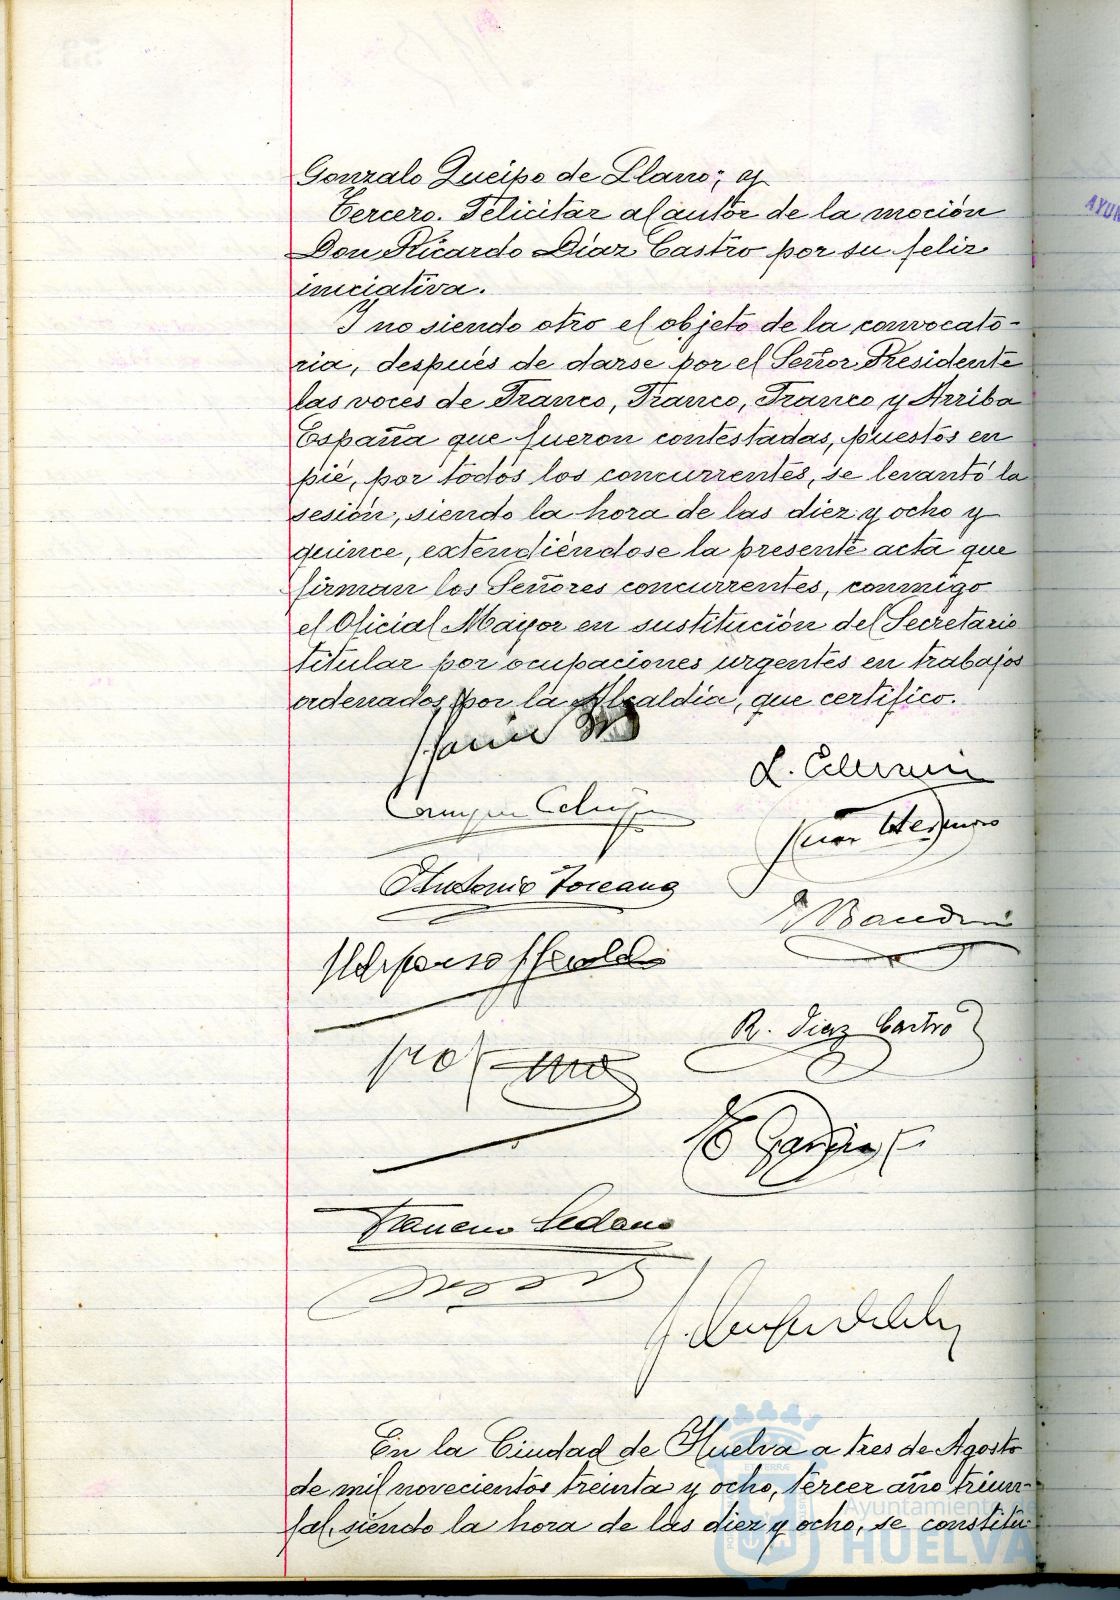 Gonzalo Queipo de Llano; y
Tercero. Felicitar al autor de la moción
Don Ricardo Díaz Castro por su feliz
iniciativa.
Y no siendo otro el objeto de la convocato-
ria, después de darse por el Señor Presidente
las voces de Franco, Franco, Franco y Arriba
España que fueron contestadas, puestos en
pié, por todos los concurrentes, se levantó la
sesión, siendo la hora de las diez y ocho y
quince, extendiéndose la presente acta que
firman los Señores concurrentes, conmigo
el Oficial Mayor en sustitución del Secretario
titular por ocupaciones urgentes en trabajos
ordenados por la Alcaldía, que certifico.
Antonio Toscano
R. Diaz Castro
Francisco Sedano
En la Ciudad de Huelva a tres de Agosto
de mil novecientos treinta y ocho, tercer año triun-
fal, siendo la hora de las diez y ocho, se constitu-
Ayuntamiento de
HUELVA
AYUN